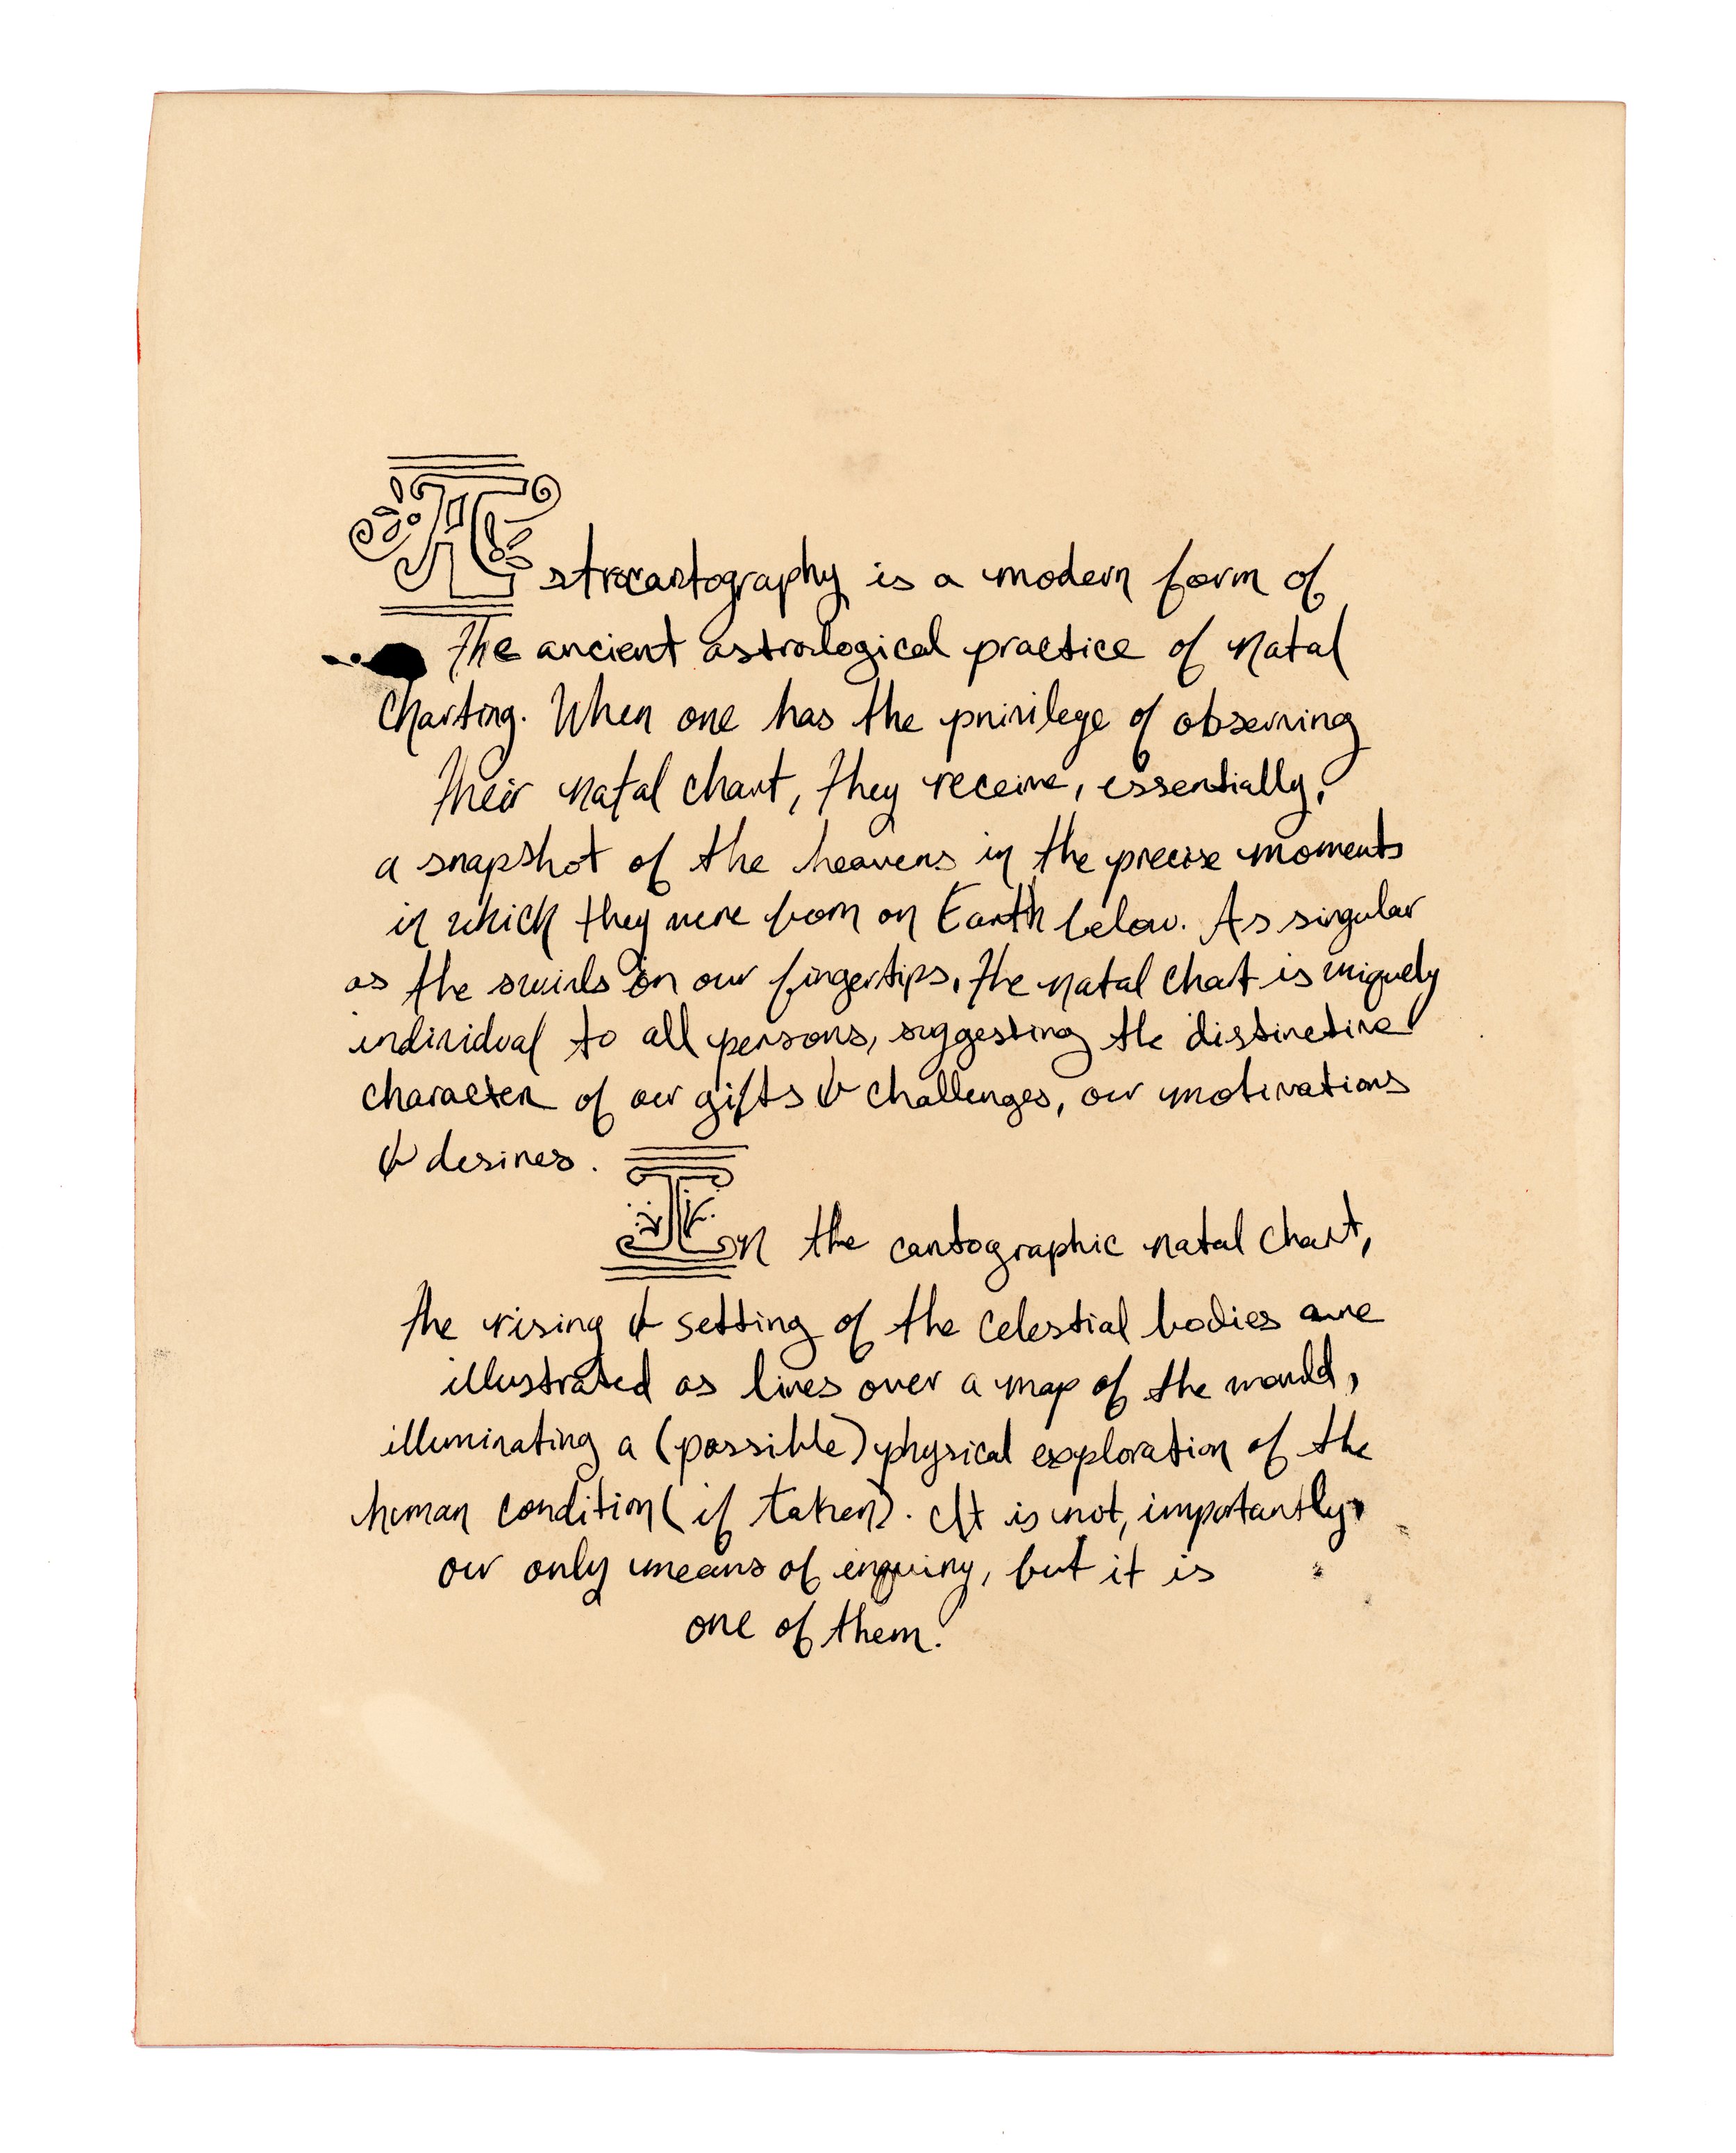 Astrocartography is a modern form of
the ancient astrological practice of natal
charting. When one has the privilege of observing
their natal chart, they receive, essentially,
a snapshot of the heavens in the precise moments
in which they were born on Earth below. As singular
as the swirls on our fingertips, the natal chart is uniquely
individual to all persons, suggesting the distinctive
character of our gifts & challenges, our motivations
& desires.
In the cartographic natal chart,
the rising & setting of the celestial bodies are
illustrated as lines over a map of the world,
illuminating a (possible) physical exploration of the
human condition (if taken). It is not, importantly,
our only means of enquiry, but it is
one of them.